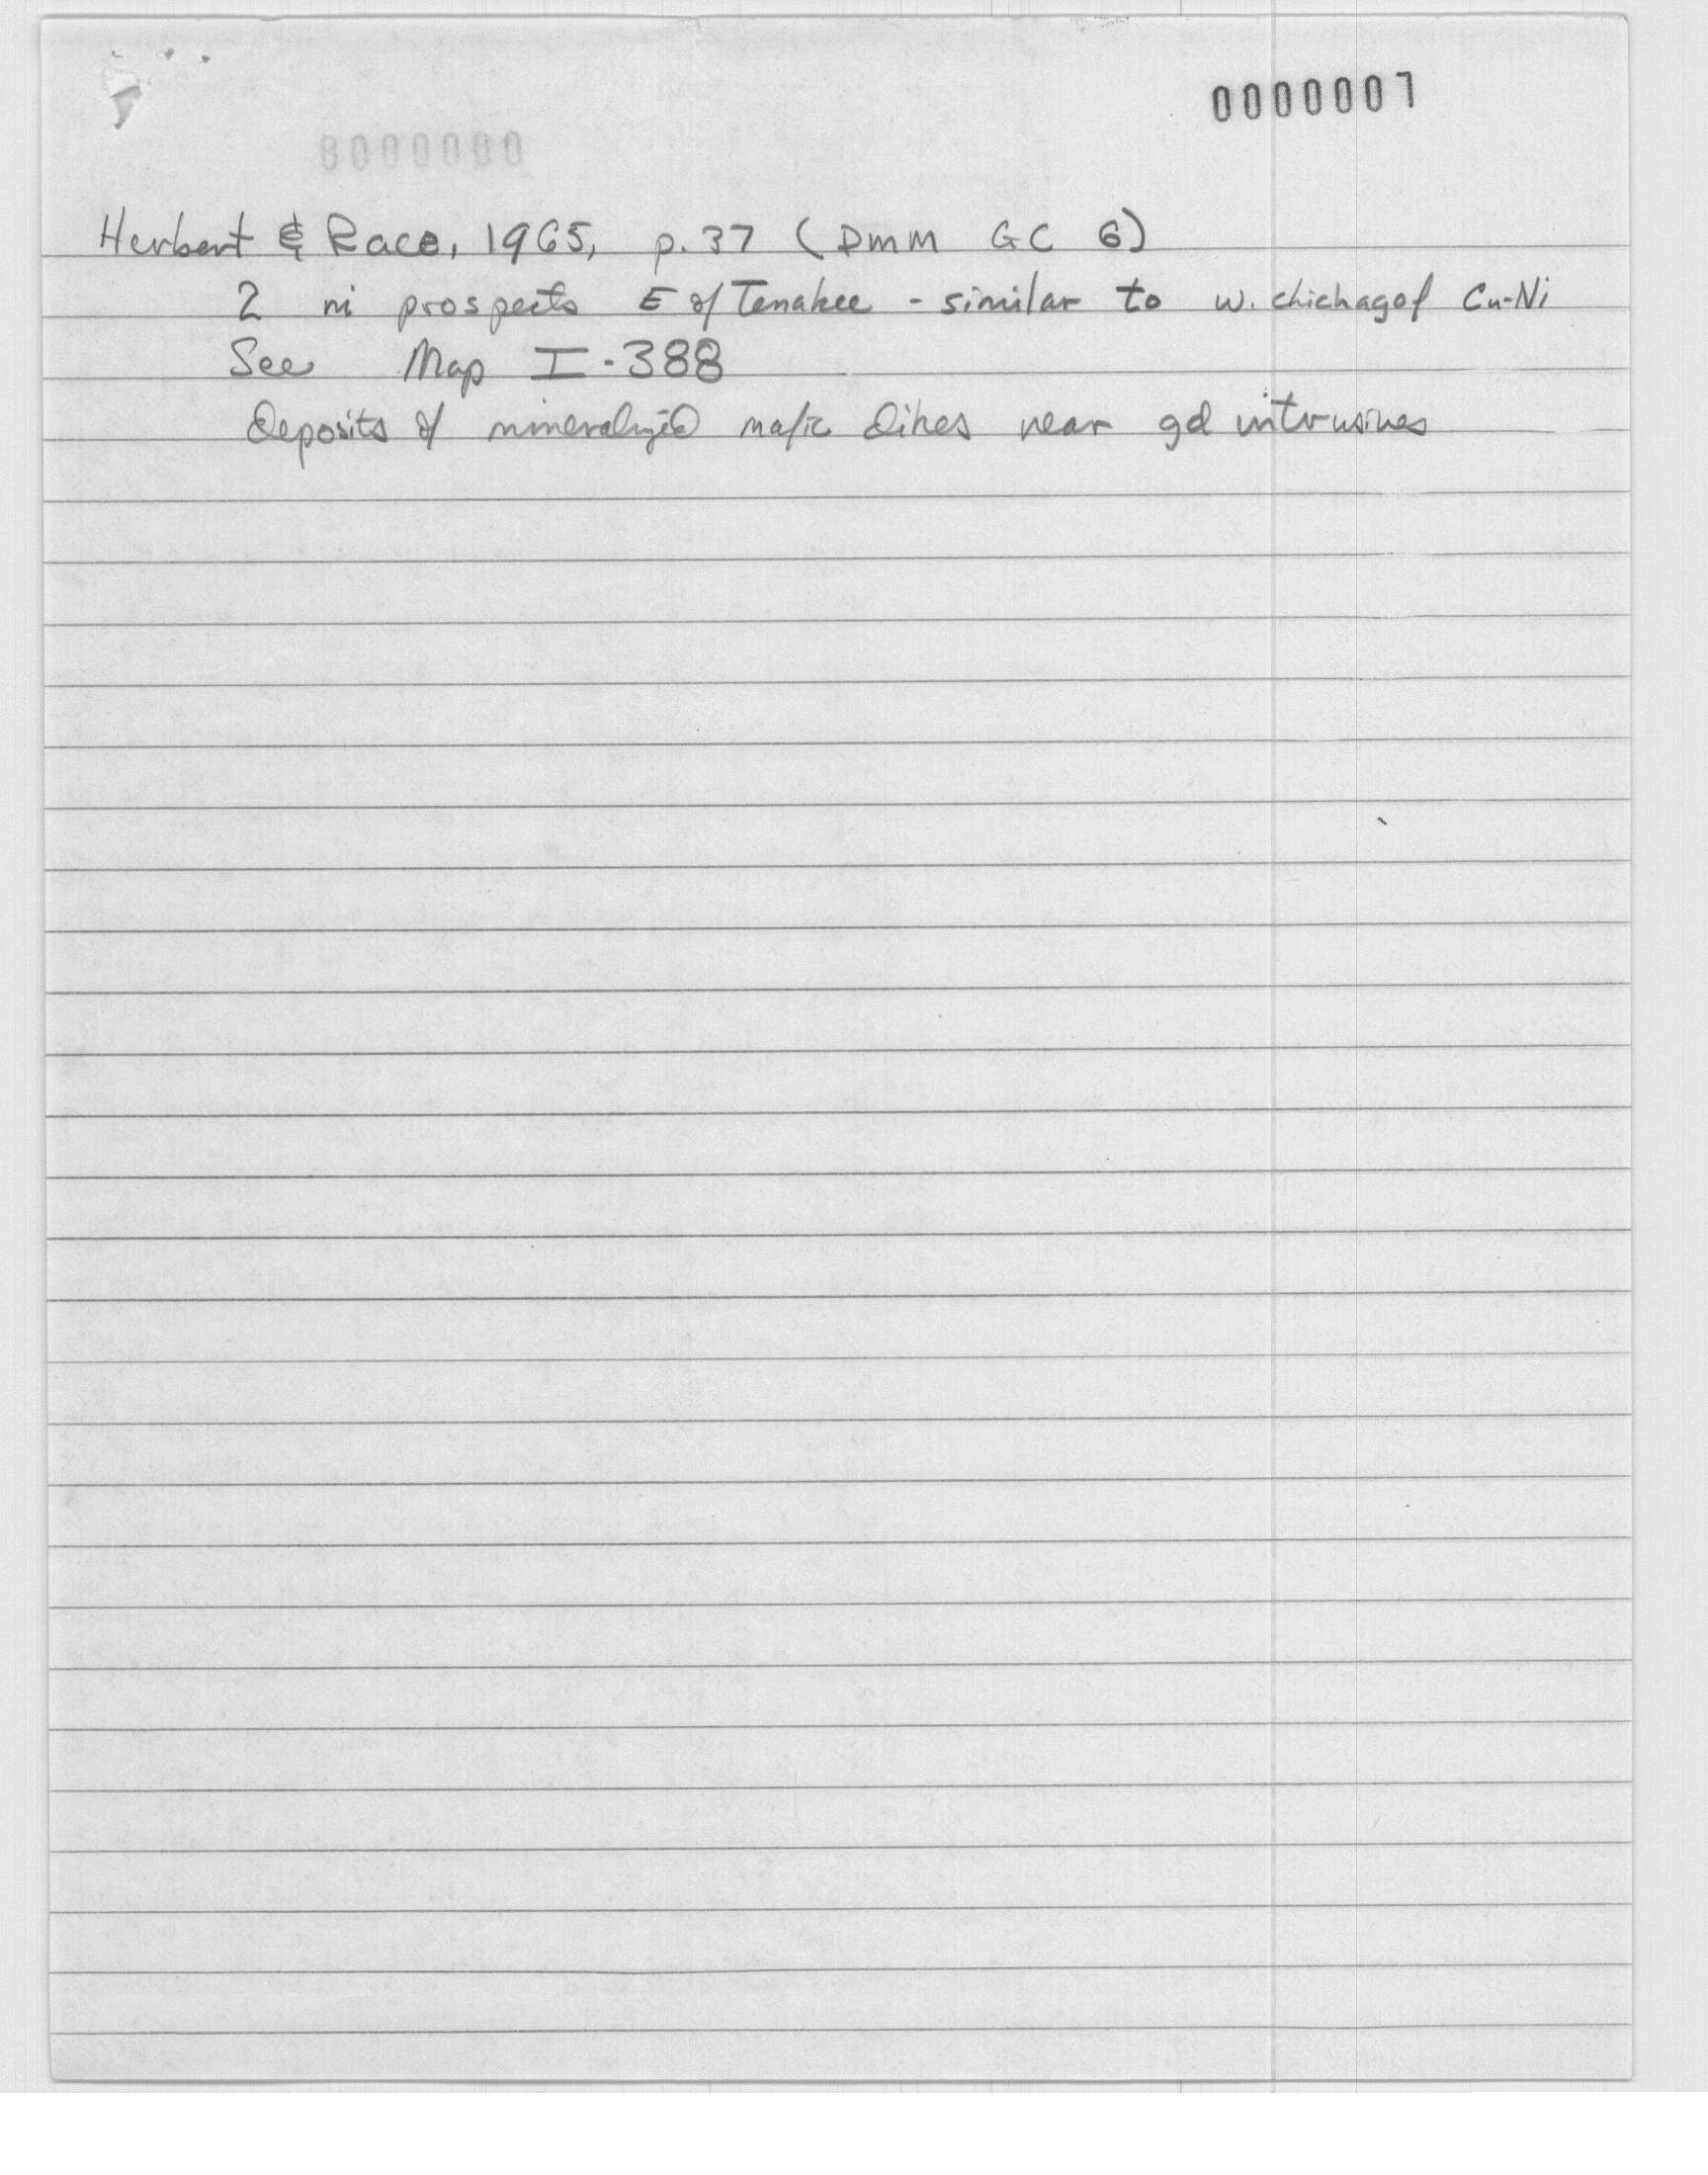 0000007
8000000
Herbert & Race, 1965, p. 37 (DMM GC 6)
2 ni prospects E of Tenakee - similar to W. Chichagof Cu-Ni
See Map I-388
deposits of mineralized mafic dikes near gd intrusives